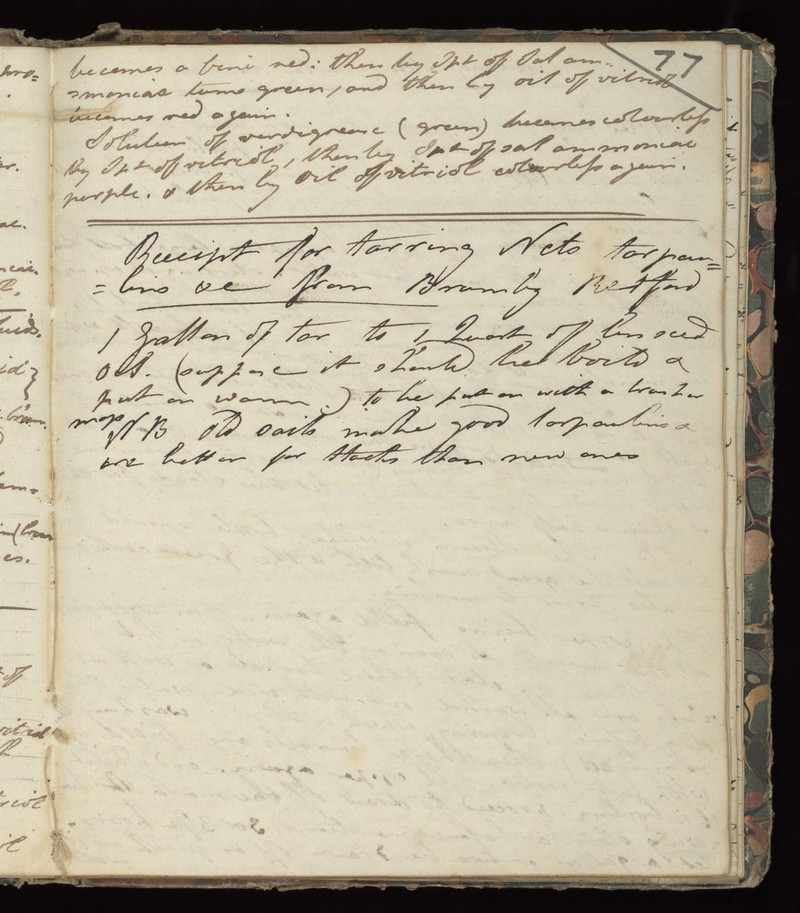 77
becomes a fine red: then by Spt of Sal am-
moniac turns green, and then by oil of vitriol
becomes red again.
Solution of verdigrease (green) becomes colourless
by Spt of vitriol, then by Spt of sal ammoniac
purple. & then by Oil of vitriol colourless again.
Receipt for tarring Nets tarpau=
=lins &c from Bramby Retford
1 Gallon of tar to 1 Quart of linseed
Oil. (suppose it should be boild &
put on warm.) to be put on with a brush or
mop NB Old sails make good tarpaulins &
are better for Stacks than new ones